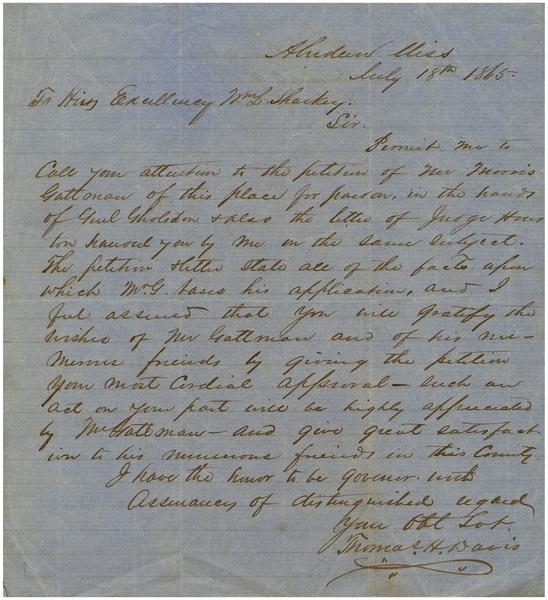 Aberdeen Miss
July 18th 1865.
To His Excellency Wm L Sharkey.
Sir.
Permit me to
Call your attention to the petition of Mr Morris
Gattman of this place for pardon, in the hands
of Genl Gholdson & also the letter of Judge Hous
ton handed you by me on the same subject.
The petition & letter state all of the facts upon
which Mr G. bases his application, and I
feel assured that you will gratify the
wishes of Mr Gattman and of his nu-
merous friends by giving the petition
your most Cordial approval - such an
act on your part will be highly appreciated
by Mr Gattman - and give great satisfact
ion to his numerous friends in this County.
I have the honor to be Govenor. with
Assurances of distinguished regard
Your Obt Svt.
Thomas. H. Davis